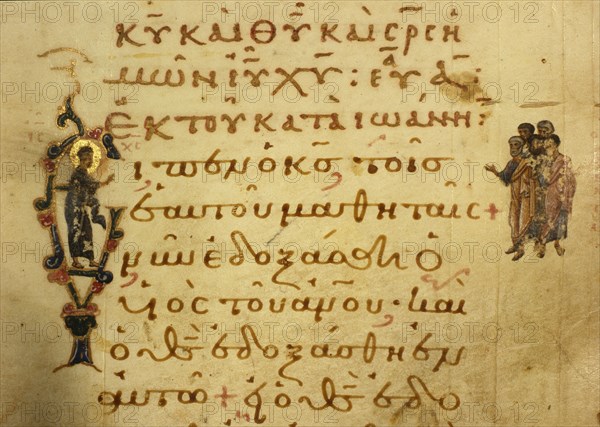 ΚΥ ΚΑΙ ΘΥ ΚΑΙ ΣΡΣ Η
ΜΩΝ ΙΥ ΧΥ : ΕΥΑ :
ΕΚ ΤΟΥ ΚΑΤΑ ΙΩΑΝΝΗ :
Ειπεν ὁ κς τοῖς
ἑαυτοῦ μαθηταῖς +
νῦν ἐδοξάσθη ὁ
υἱὸς τοῦ ανου · καὶ
ὁ θς ἐδοξάσθη ἐν
αὐτῶ + ὁ θς ἐδο